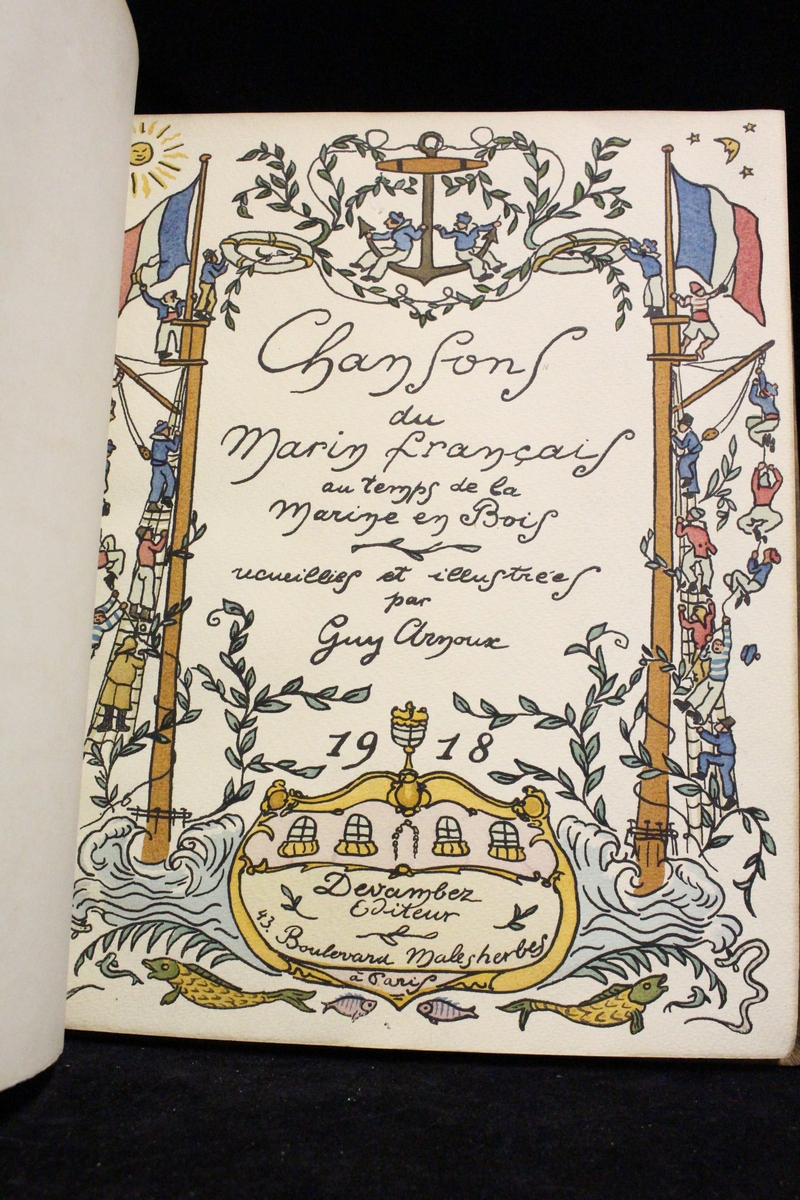 Chansons
du
Marin français
au temps de la
Marine en Bois
recueillies et illustrées
par
Guy Arnoux
1918
Devambez
Editeur
43. Boulevard Malesherbes
à Paris